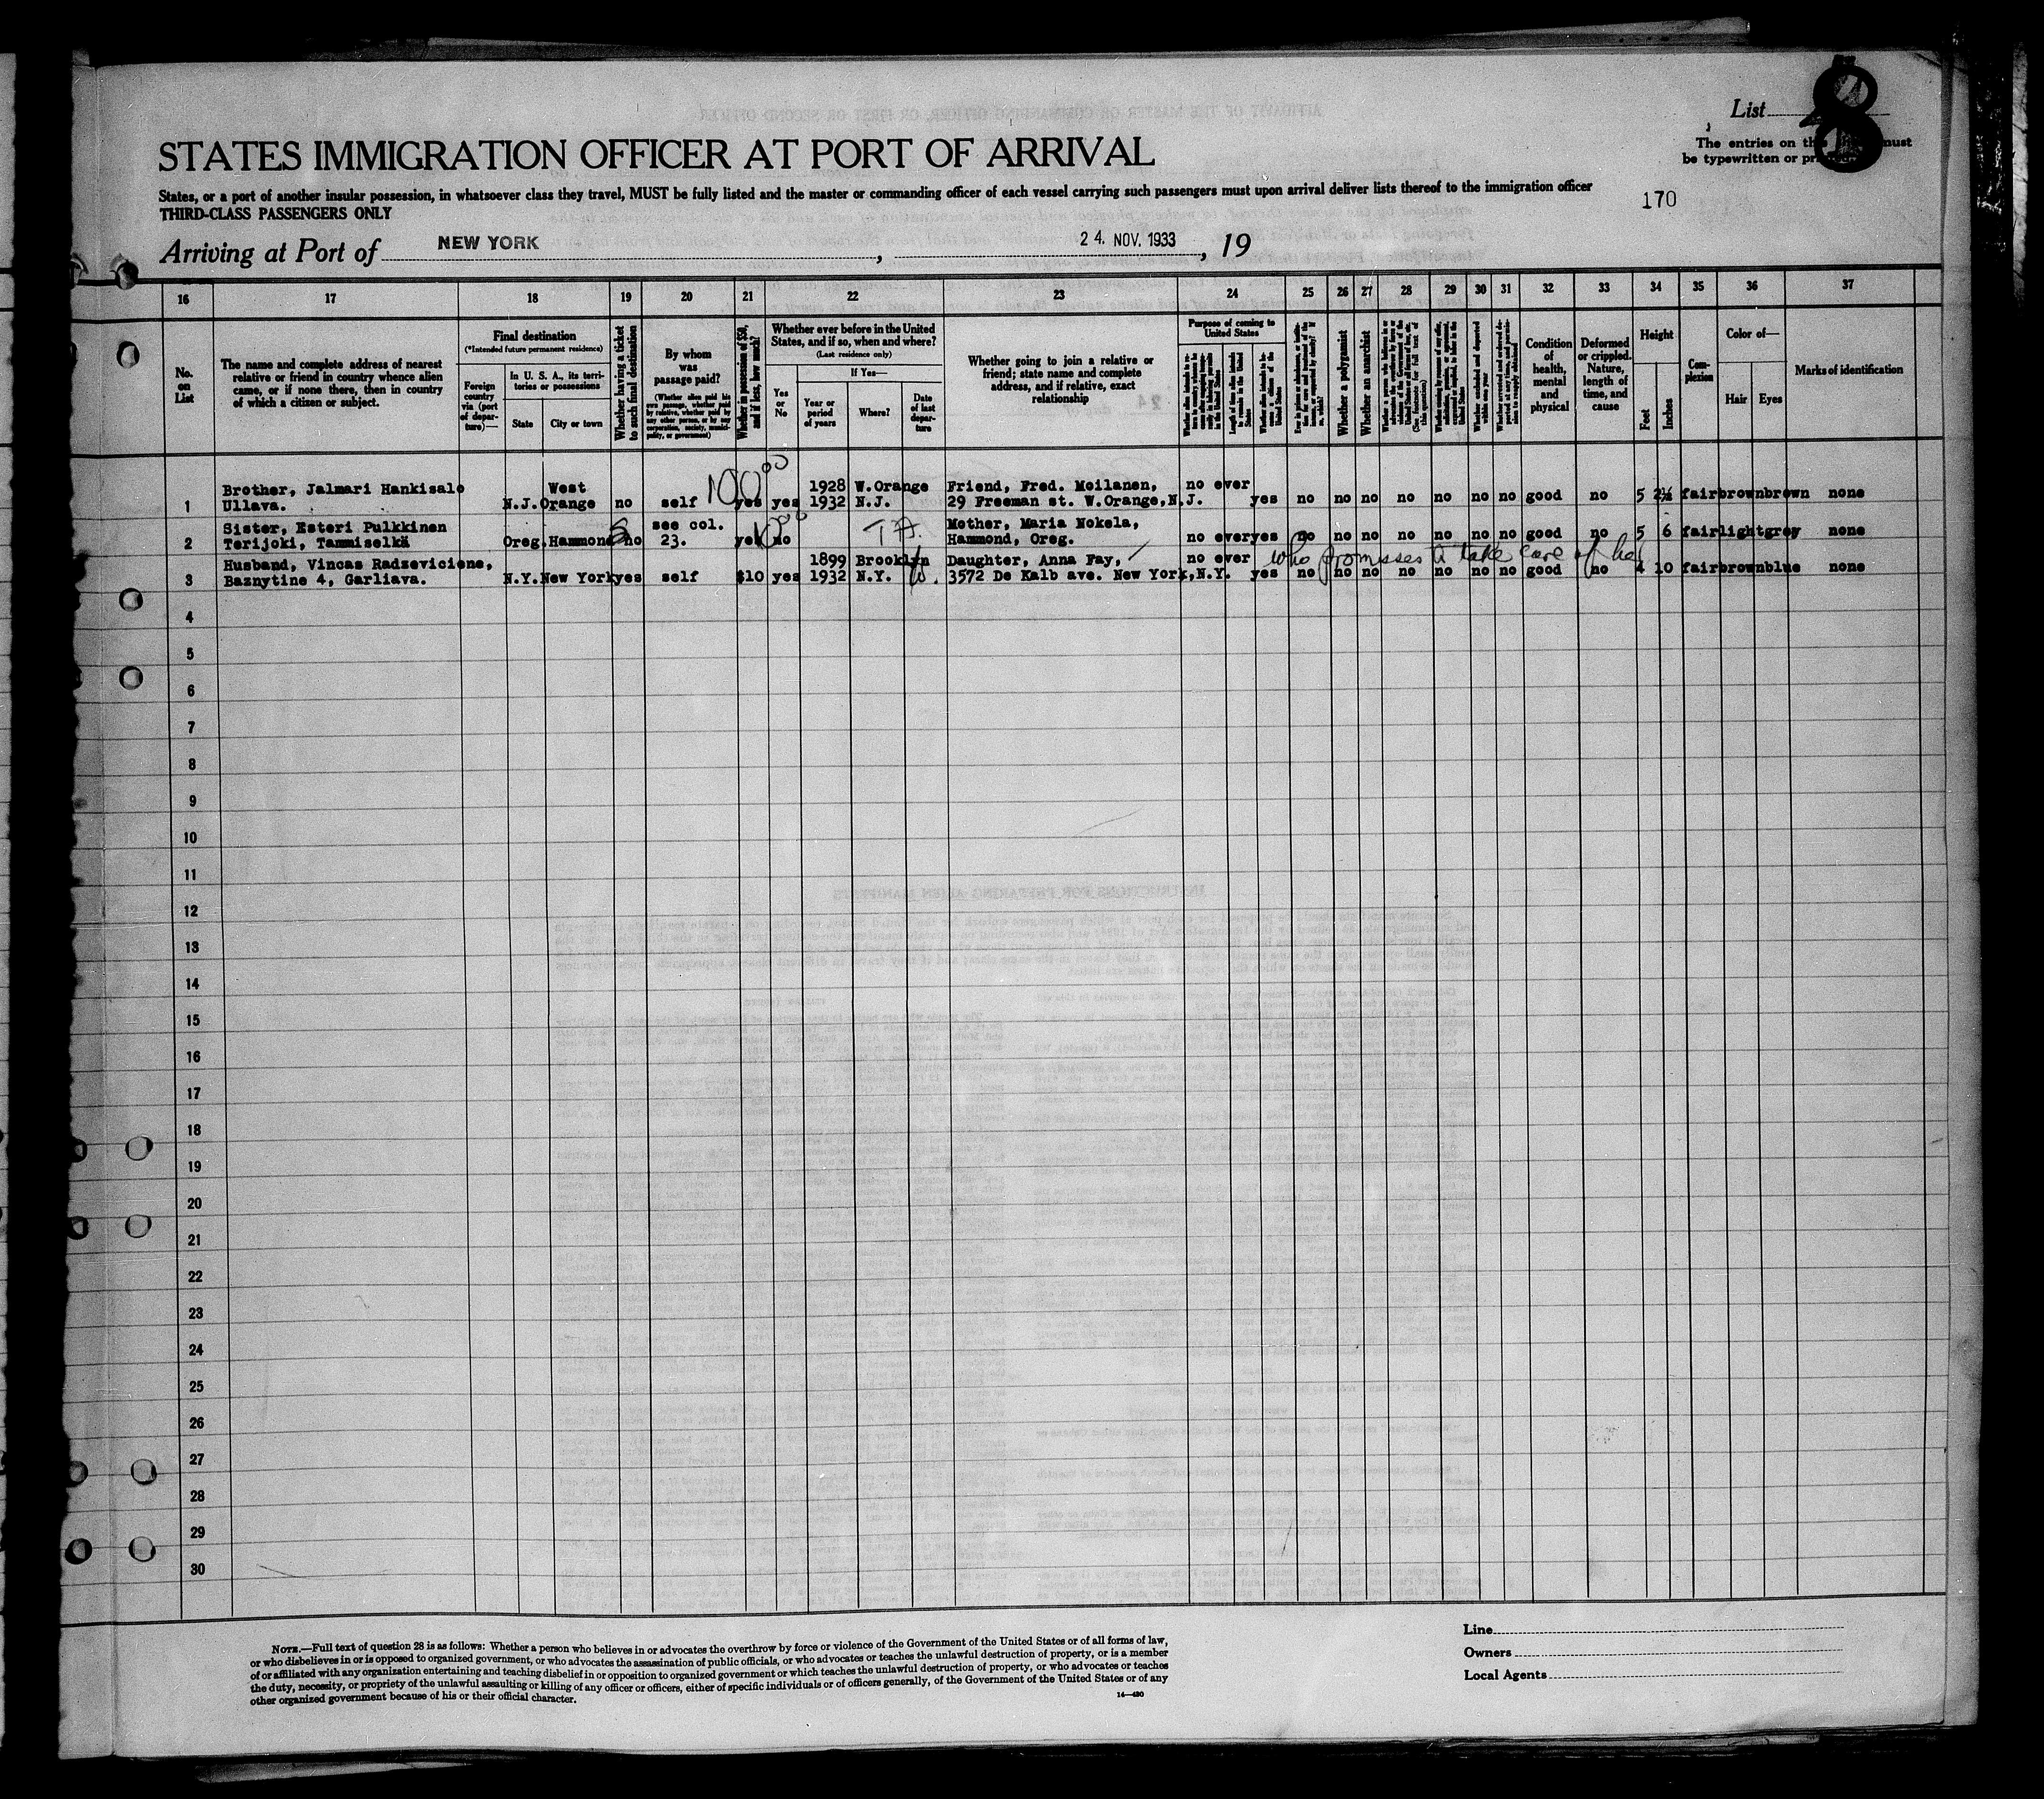 List 8
The entries on this must
be typewritten or printed
STATES IMMIGRATION OFFICER AT PORT OF ARRIVAL
States, or a port of another insular possession, in whatsoever class they travel, MUST be fully listed and the master or commanding officer of each vessel carrying such passengers must upon arrival deliver lists thereof to the immigration officer
THIRD-CLASS PASSENGERS ONLY
170
Arriving at Port of NEW YORK, 24. NOV. 1933, 19
16 17 18 19 20 21 22 23 24 25 26 27 28 29 30 31 32 33 34 35 36 37
No.
on
List
The name and complete address of nearest
relative or friend in country whence alien
came, or if none there, then in country
of which a citizen or subject.
Final destination
(*Intended future permanent residence)
Foreign
country
via (port
of depar-
ture)—
In U. S. A., its terri-
tories or possessions
State
City or town
Whether having a ticket
to such final destination
By whom
was
passage paid?
(Whether alien paid his
own passage, whether paid
by relative, whether paid by
any other person, or by any
corporation, society, munici-
pality, or government)
Whether in possession of $50,
and if less, how much?
Whether ever before in the United
States, and if so, when and where?
(Last residence only)
Yes
or
No
If Yes—
Year or
period
of years
Where?
Date
of last
depar-
ture
Whether going to join a relative or
friend; state name and complete
address, and if relative, exact
relationship
Purpose of coming to
United States
Whether a polygamist
Whether an anarchist
Condition
of
health,
mental
and
physical
Deformed
or crippled.
Nature,
length of
time, and
cause
Height
Feet
Inches
Com-
plexion
Color of—
Hair
Eyes
Marks of identification
Brother, Jalmari Hankisalo West 100⁰⁰ 1928 W.Orange Friend, Fred. Meilanen, no ever
1 Ullava. N.J. Orange no self yes yes 1932 N.J. 29 Freeman st. W.Orange,N.J. yes no no no no no no no good no 5 2½ fair brown brown none
Sister, Esteri Pulkkinen see col. Mother, Maria Nokela,
2 Terijoki, Tammiselkä Oreg. Hammond no 23. no Hammond, Oreg. no ever yes no no no no no no no good no 5 6 fair light grey none
Husband, Vincas Radzeviciene, 1899 Brooklyn Daughter, Anna Fay, no ever who promises to take care of her
3 Baznytine 4, Garliava. N.Y. New York yes self $10 yes 1932 N.Y. 3572 De Kalb ave. New York,N.Y. yes no no no no no no no good no 4 10 fair brown blue none
4
5
6
7
8
9
10
11
12
13
14
15
16
17
18
19
20
21
22
23
24
25
26
27
28
29
30
NOTE.—Full text of question 28 is as follows: Whether a person who believes in or advocates the overthrow by force or violence of the Government of the United States or of all forms of law,
or who disbelieves in or is opposed to organized government, or who advocates the assassination of public officials, or who advocates or teaches the unlawful destruction of property, or is a member
of or affiliated with any organization entertaining and teaching disbelief in or opposition to organized government or which teaches the unlawful destruction of property, or who advocates or teaches
the duty, necessity, or propriety of the unlawful assaulting or killing of any officer or officers, either of specific individuals or of officers generally, of the Government of the United States or of any
other organized government because of his or their official character.
14—430
Line
Owners
Local Agents